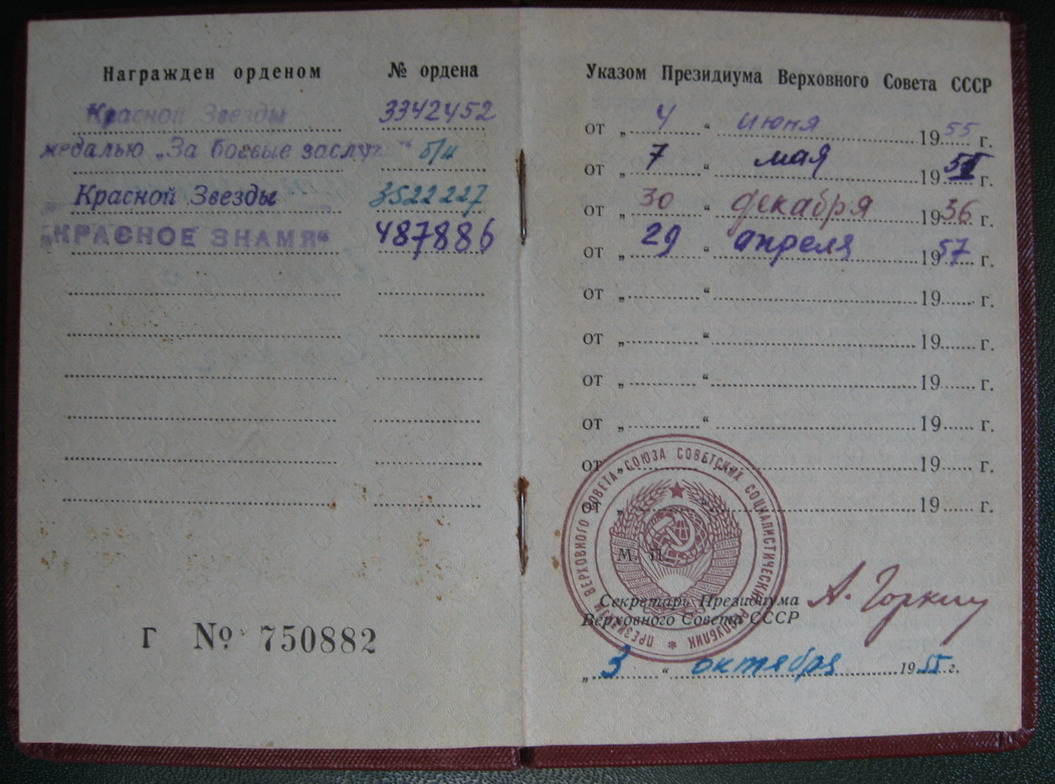 Награжден орденом № ордена
Красной Звезды 3342452
медалью „За боевые заслуги“ б/н
Красной Звезды 3522227
„КРАСНОЕ ЗНАМЯ“ 487886
Г № 750882
Указом Президиума Верховного Совета СССР
от „ 4 “ июня 1955 г.
от „ 7 “ мая 19 г.
от „ 30 “ декабря 1956 г.
от „ 29 “ апреля 1957 г.
от „ “ 19 г.
от „ “ 19 г.
от „ “ 19 г.
от „ “ 19 г.
от „ “ 19 г.
от „ “ 19 г.
ПРЕЗИДИУМ ВЕРХОВНОГО СОВЕТА СОЮЗА СОВЕТСКИХ СОЦИАЛИСТИЧЕСКИХ РЕСПУБЛИК
М. П.
Секретарь Президиума
Верховного Совета СССР
А. Горкин
„ 3 “ октября 1955 г.